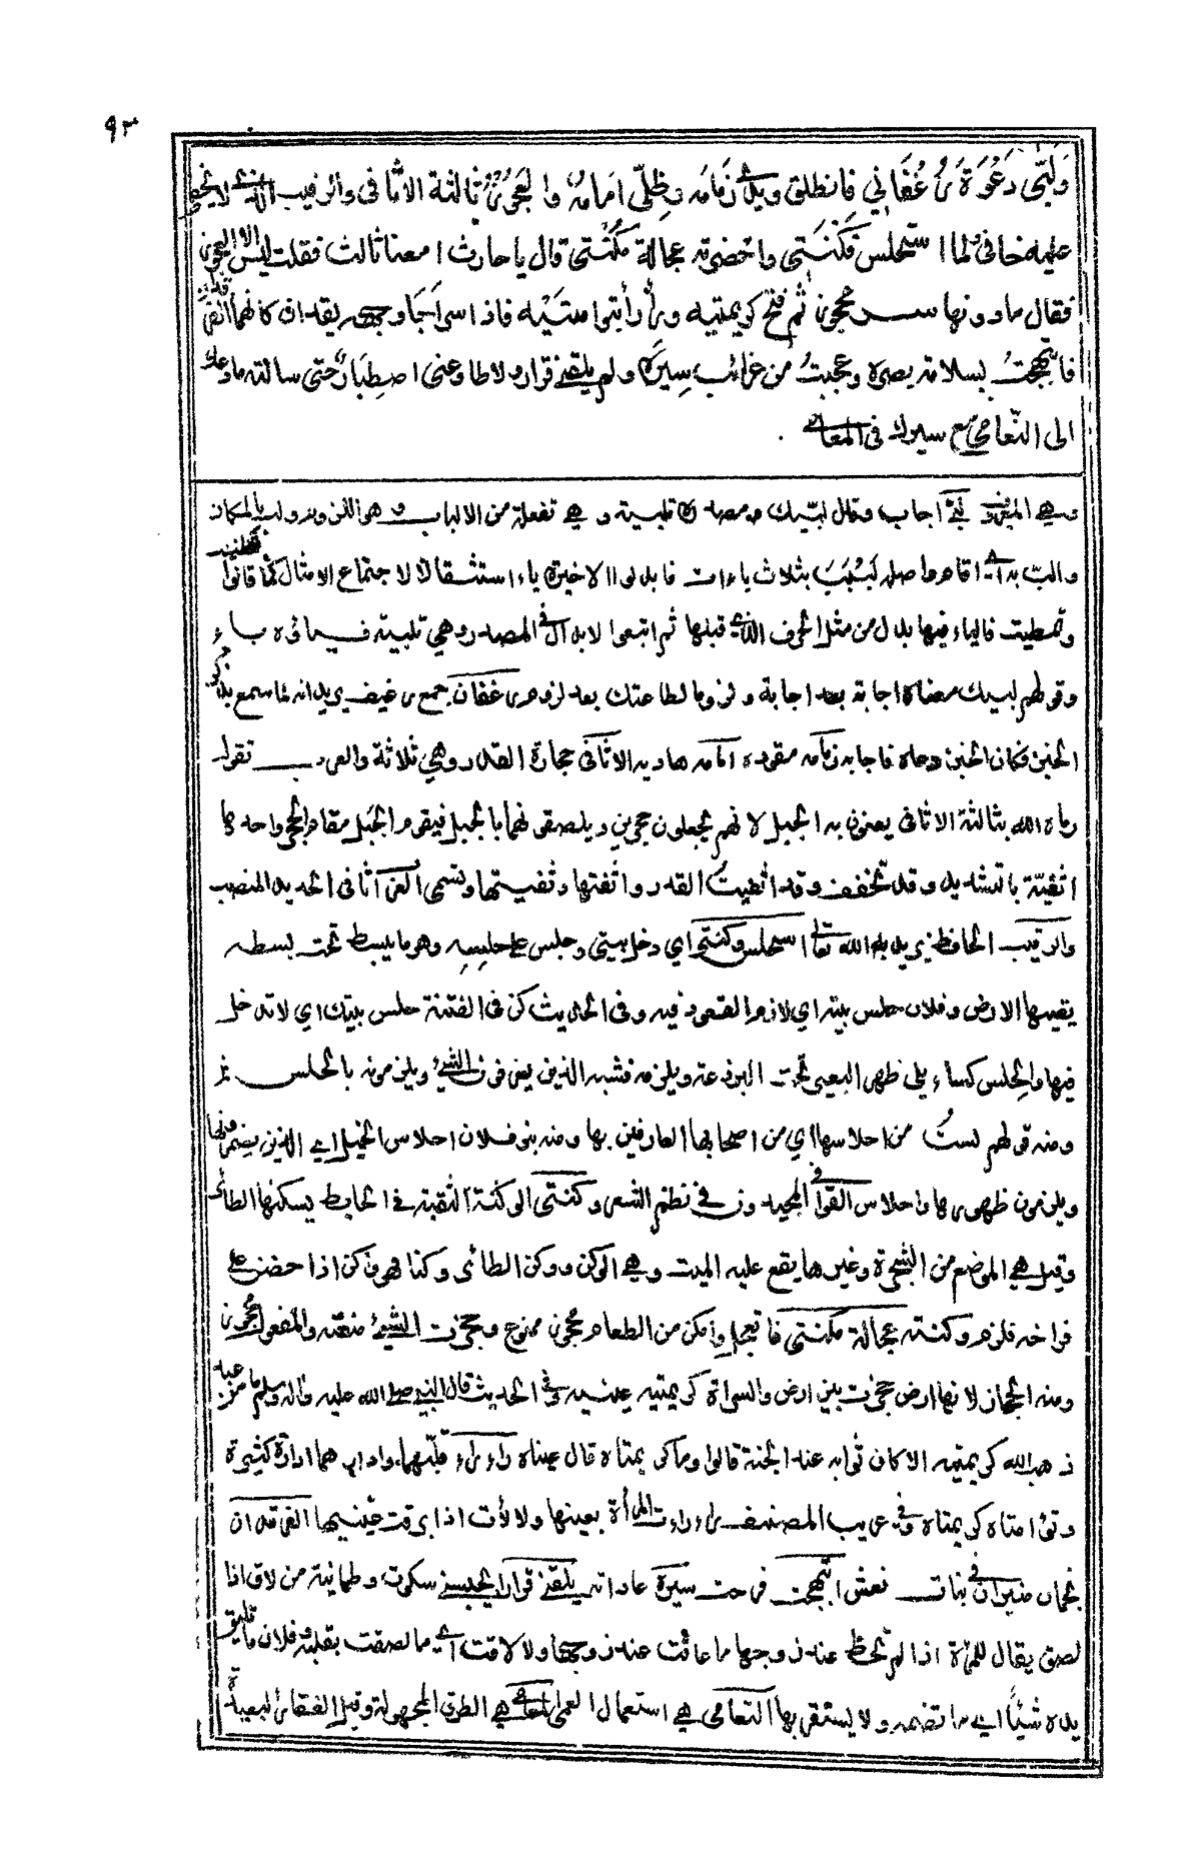 ٩٣
ولبّى دعوة رغفاني فانطلق وبيدي زمامه وظلّي امامه والعجوز ثالثة الاثافى والرقيب الذي لا يخفى
عليه خافي ولما استحلس وكنتي واحضرته عجالة مكنتي قال يا حارث امعنا ثالث فقلت ليس الا العجوز
فقال ما دونها سر محجوز ثم فتح كريمتيه ورأرأ بتوأمتيه فاذا سراجا وجهه يقدان كانهما الفرقدان
فابتهجت بسلامة بصره وعجبت من غرائب سيره ولم يلقني قرار ولا طاوعنى اصطبار حتى سالته ما دعاك
الى التعامي مع سيرك فى المعامي
لبّى اجاب وقال لبيك ومصدره تلبية وهي تفعلة من الالباب وهو اللزوم ولب بالمكان
والب به اى اقام واصله لببب بثلاث ياءات فابدلوا الاخيرة ياء استثقالا لاجتماع الامثال كما قالوا تظنيت
وتمطيت فالياء فيها بدل من مثل الحرف الذي قبلها ثم اتبعوا الابدال في المصدر وهي تلبية ياء
وقولهم لبيك معناه اجابة بعد اجابة ولزوما لطاعتك بعد لزوم رغفان جمع رغيف يريد انه لما سمع بذكر
الخبز فكان الخبز دعاه فاجابه زمامه مقوده امامه هاديه الاثافى حجارة القدر وهي ثلاثة والعرب تقول
رماه الله بثالثة الاثافى يعنون به الجبل لانهم يجعلون حجرين ويلصقونهما بالجبل فيقوم الجبل مقام الحجر واحدها
اثفيّة بالتشديد وقد تخفف وقد اثفيت القدر واثفتها وثفيتها وتسمى اثافى الحديد المنصب
والرقيب الحافظ يريد به الله تعالى استحلس وكنتي اي دخل بيتي وجلس على حلسه وهو ما يبسط تحت بسطه
يقيها الارض وفلان حلس بيته اي لازم القعود فيه وفى الحديث كن فى الفتنة حلس بيتك اي لا تدخل
فيها والحلس كساء يلى ظهر البعير تحت البرذعة ويلزمه فشبه الذين يعرفون الشئ ويلزمونه بالحلس
ومنه قولهم لست من احلاسها اي من اصحابها العارفين بها ومنه بنو فلان احلاس الخيل اي الذين
ويلزمون ظهورها واحلاس القوافي المجيدون في نظم الشعر وكنتى الوكنة الثقبة فى الحايط يسكنها الطائر
وقيل هي الموضع من الشجرة وغيرها يقع عليه الميت وهي الوكن ووكن الطائر وكنا فهو وكن اذا حضن على
فراخه فلزم وكنته عجالة مكنتى ما تعجل وامكن من الطعام محجوز ممنوع وحجزت الشيئ منعته والمفعول محجوز
ومنه الحجاز لانها ارض حجزت بين ارض والسراة كريمتيه عينيه وفى الحديث قال النبي صلى الله عليه وآله وسلم ما من عبد
ذهب الله كريمتيه الا كان ثوابه عند الجنة قالوا وما كريمتاه قال عيناه راراء قلّبهما وادارهما ادارة كثيرة
وتؤامتاه كريمتاه وفي غريب المصنف راراءت المرأة بعينها ولالات اذا برقت عينيها الفرقدان
نجمان منيران في بنات نعش ابتهجت فرحت سيره عاداته يلقني قرار يحبسني سكون وطمانينة من لاق اذا
لصق يقال للمرأة اذا لم تحظ عند زوجها ما عاقت عند زوجها ولا لاقت اي ما لصقت بقلبه فلان ما تليق
يده شيئاً اي ما تضمه ولا يستقر بها التعامي هي استعمال العمى المعامي هي الطرق المجهولة وقيل القفار البعيدة